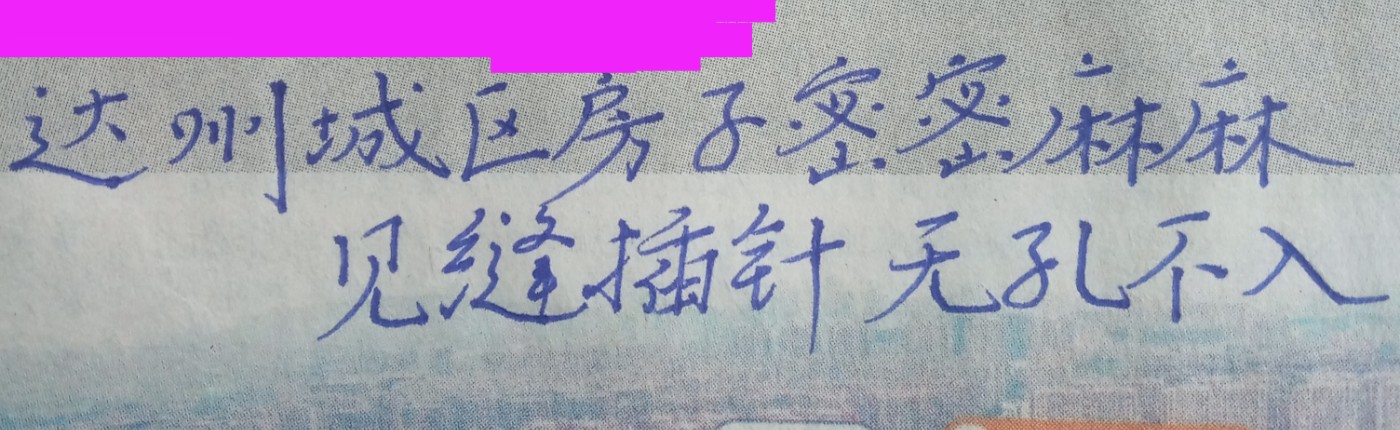 达州城区房子密密麻麻
见缝插针 无孔不入